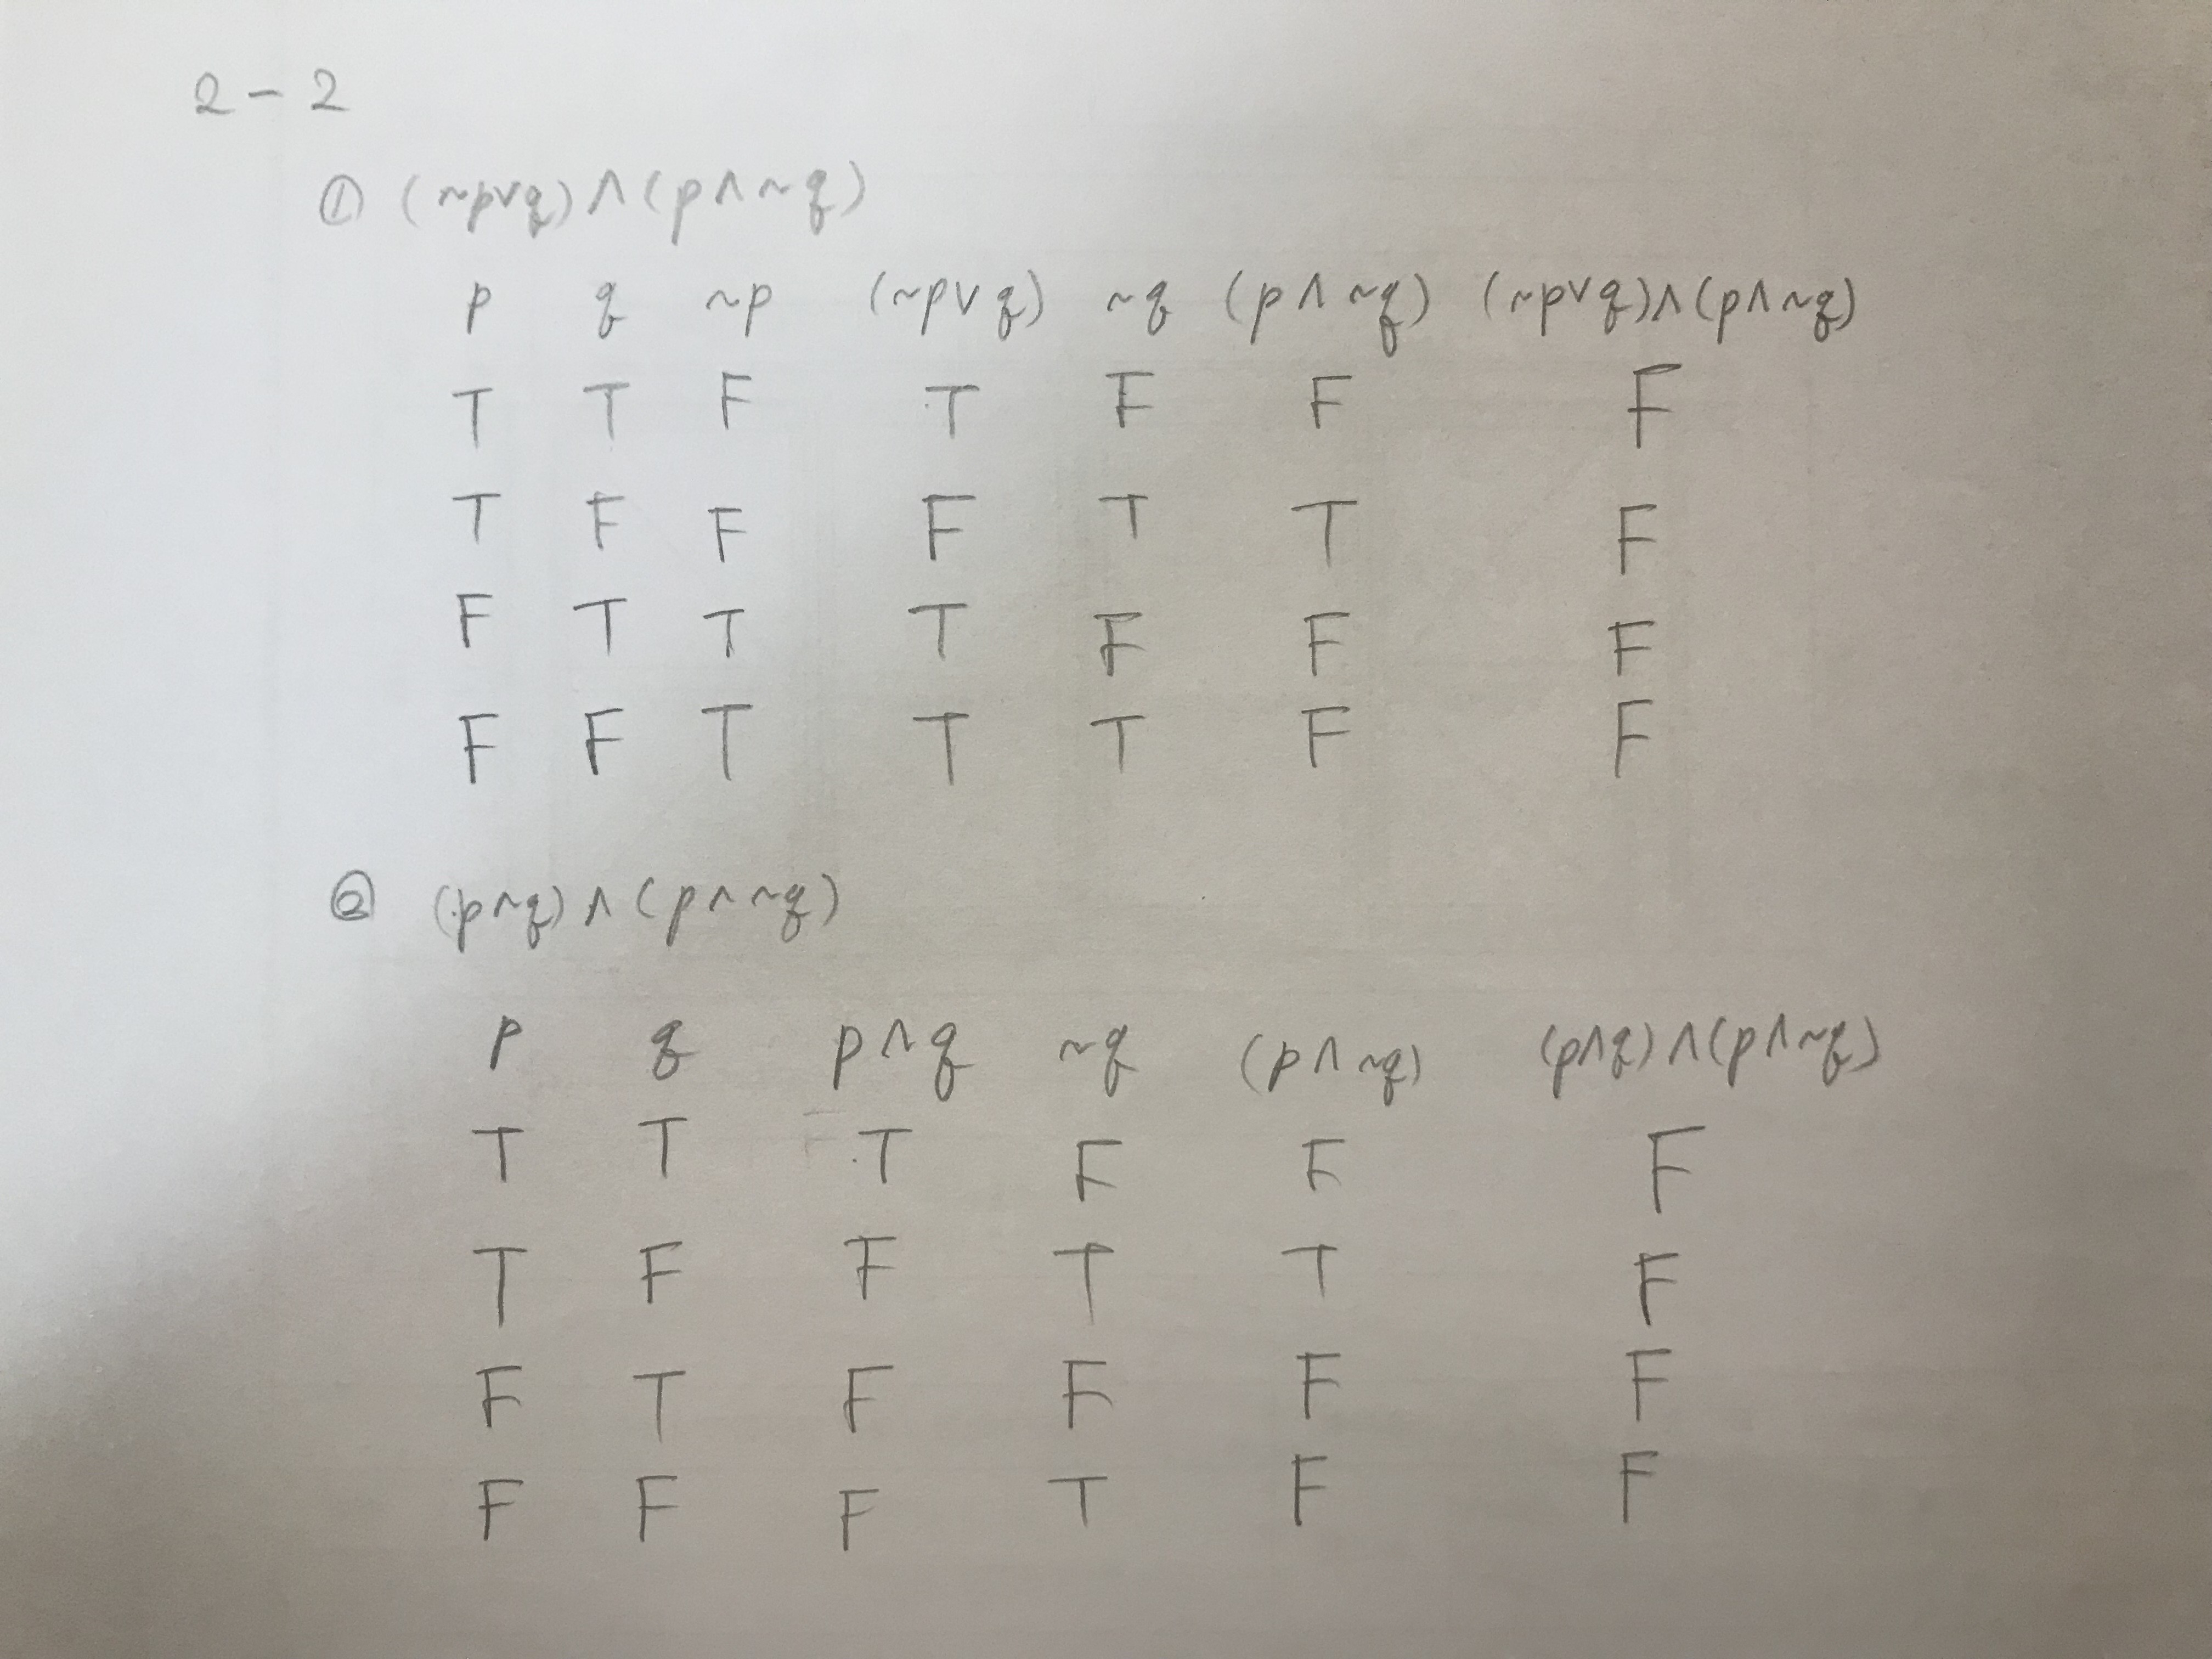 2-2
① (~p∨q)∧(p∧~q)
p q ~p (~p∨q) ~q (p∧~q) (~p∨q)∧(p∧~q)
T T F T F F F
T F F F T T F
F T T T F F F
F F T T T F F
② (p∧q)∧(p∧~q)
p q p∧q ~q (p∧~q) (p∧q)∧(p∧~q)
T T T F F F
T F F T T F
F T F F F F
F F F T F F